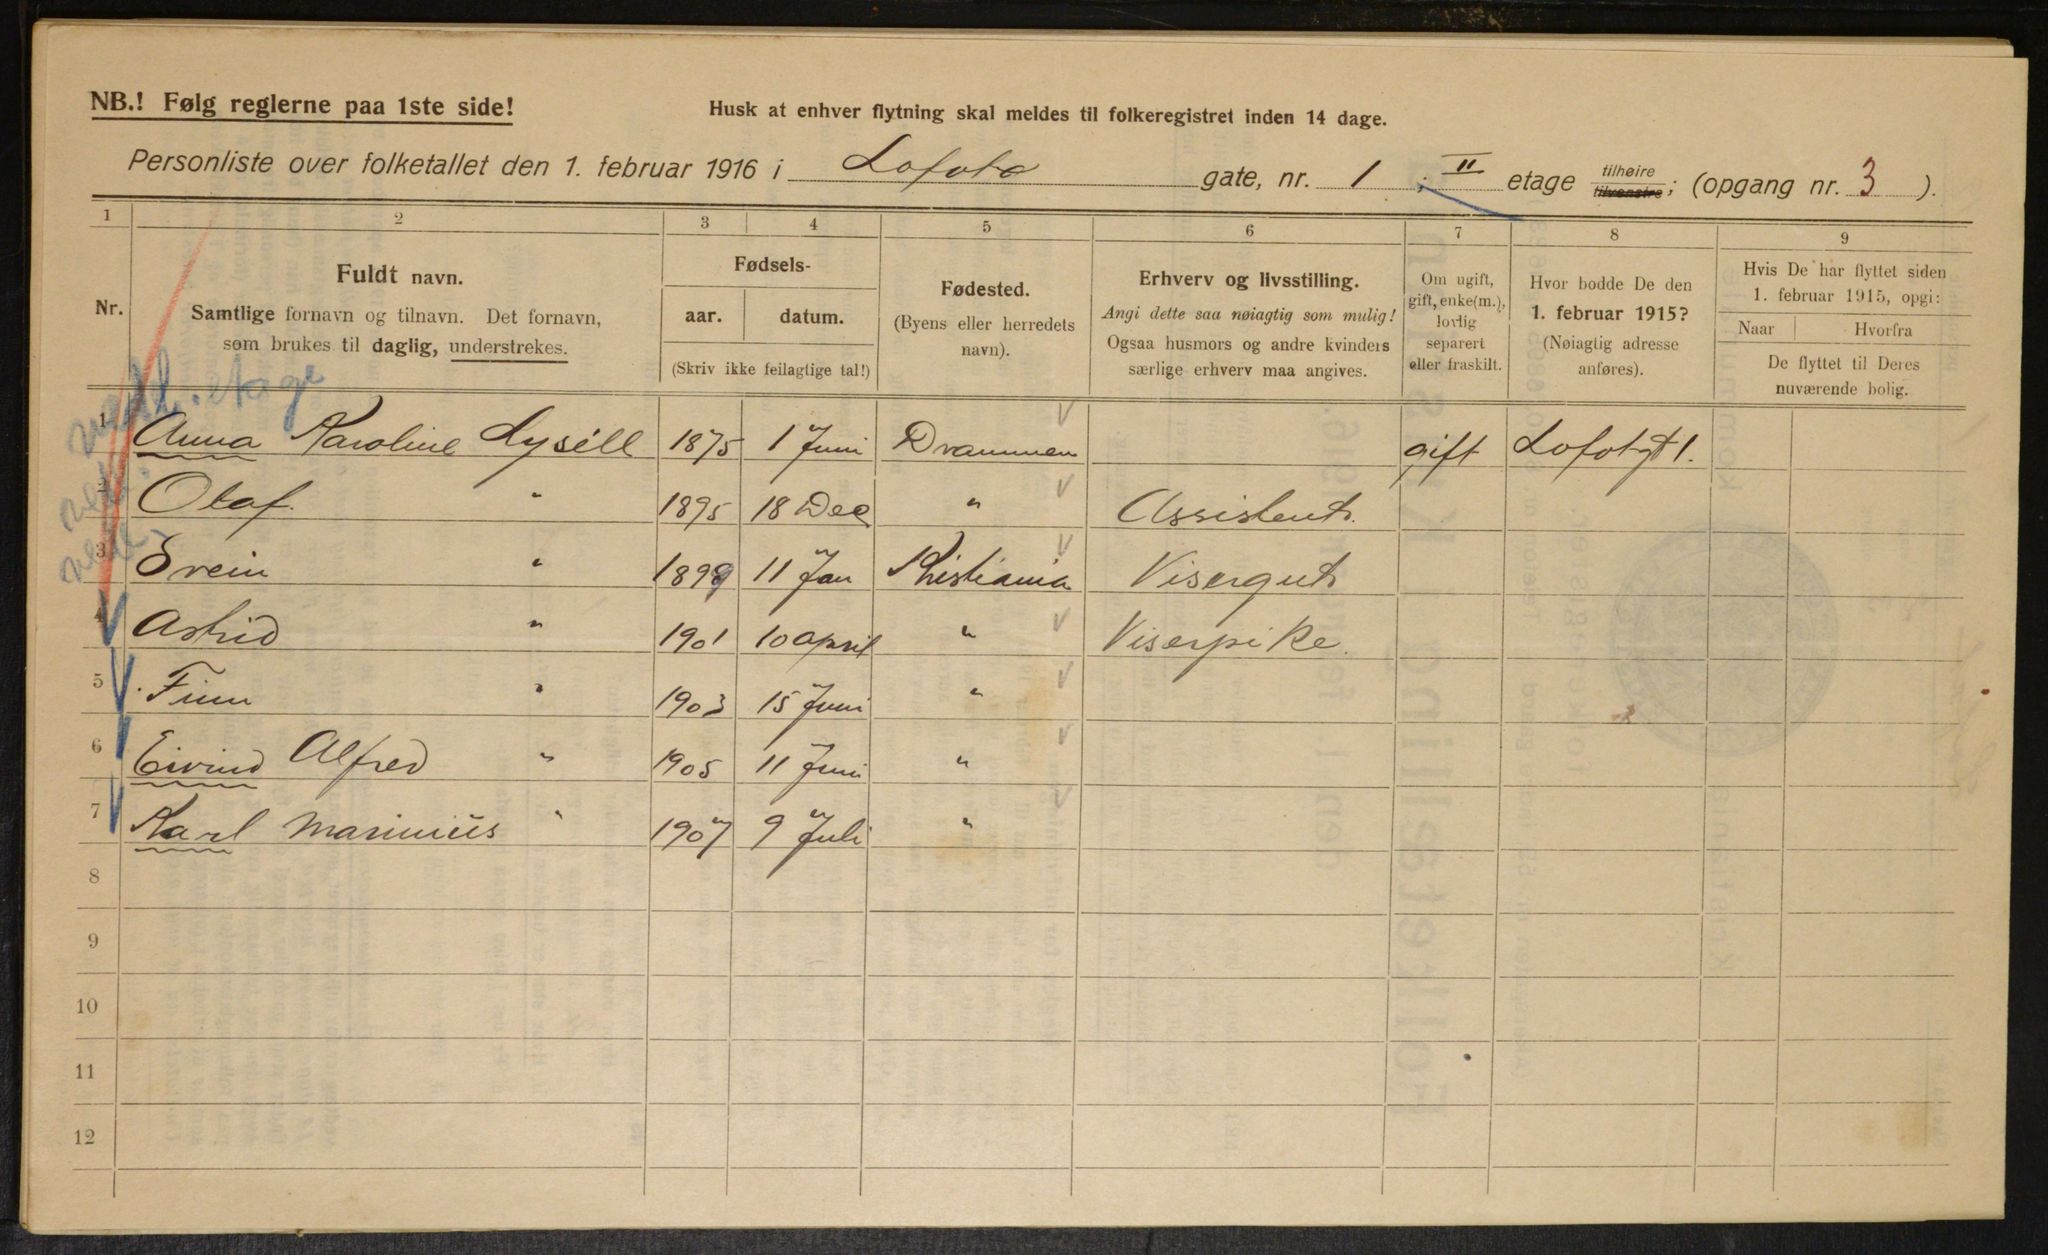 NB.! Følg reglerne paa 1ste side!
Husk at enhver flytning skal meldes til folkeregistret inden 14 dage.
Personliste over folketallet den 1. februar 1916 i Lofoto gate, nr. 1 ; II etage tilhøire tilvenstre; (opgang nr. 3 ).
1 2 3 4 5 6 7 8 9
Nr.
Fuldt navn.
Samtlige fornavn og tilnavn. Det fornavn,
som brukes til daglig, understrekes.
Fødsels-
aar. datum.
(Skriv ikke feilagtige tal!)
Fødested.
(Byens eller herredets
navn).
Erhverv og livsstilling.
Angi dette saa nøiagtig som mulig!
Ogsaa husmors og andre kvinders
særlige erhverv maa angives.
Om ugift,
gift, enke(m.),
lovlig
separert
eller fraskilt.
Hvor bodde De den
1. februar 1915?
(Nøiagtig adresse
anføres).
Hvis De har flyttet siden
1. februar 1915, opgi:
Naar Hvorfra
De flyttet til Deres
nuværende bolig.
etage
1 Anna Karoline Lysell 1875 1 Juni Drammen gift Lofotgt 1.
2 Olaf. " 1895 18 Dec " Assistent.
3 Svein " 1899 11 Jan Khistiania Visergut
4 Astrid " 1901 10 april " Viserpike.
5 Finn " 1903 15 Juni "
6 Eivind Alfred " 1905 11 Juni "
7 Karl Marinius " 1907 9 Juli "
8
9
10
11
12